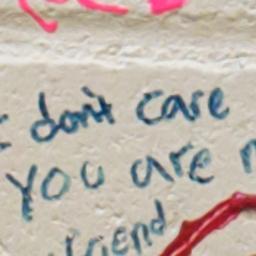 don't care
You are
friend